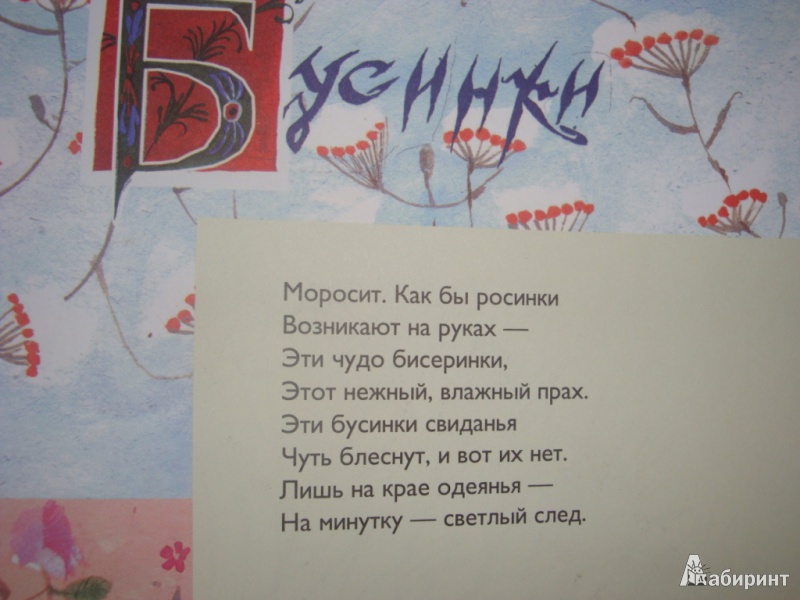 Бусинки
Моросит. Как бы росинки
Возникают на руках —
Эти чудо бисеринки,
Этот нежный, влажный прах.
Эти бусинки свиданья
Чуть блеснут, и вот их нет.
Лишь на крае одеянья —
На минутку — светлый след.
Лабиринт